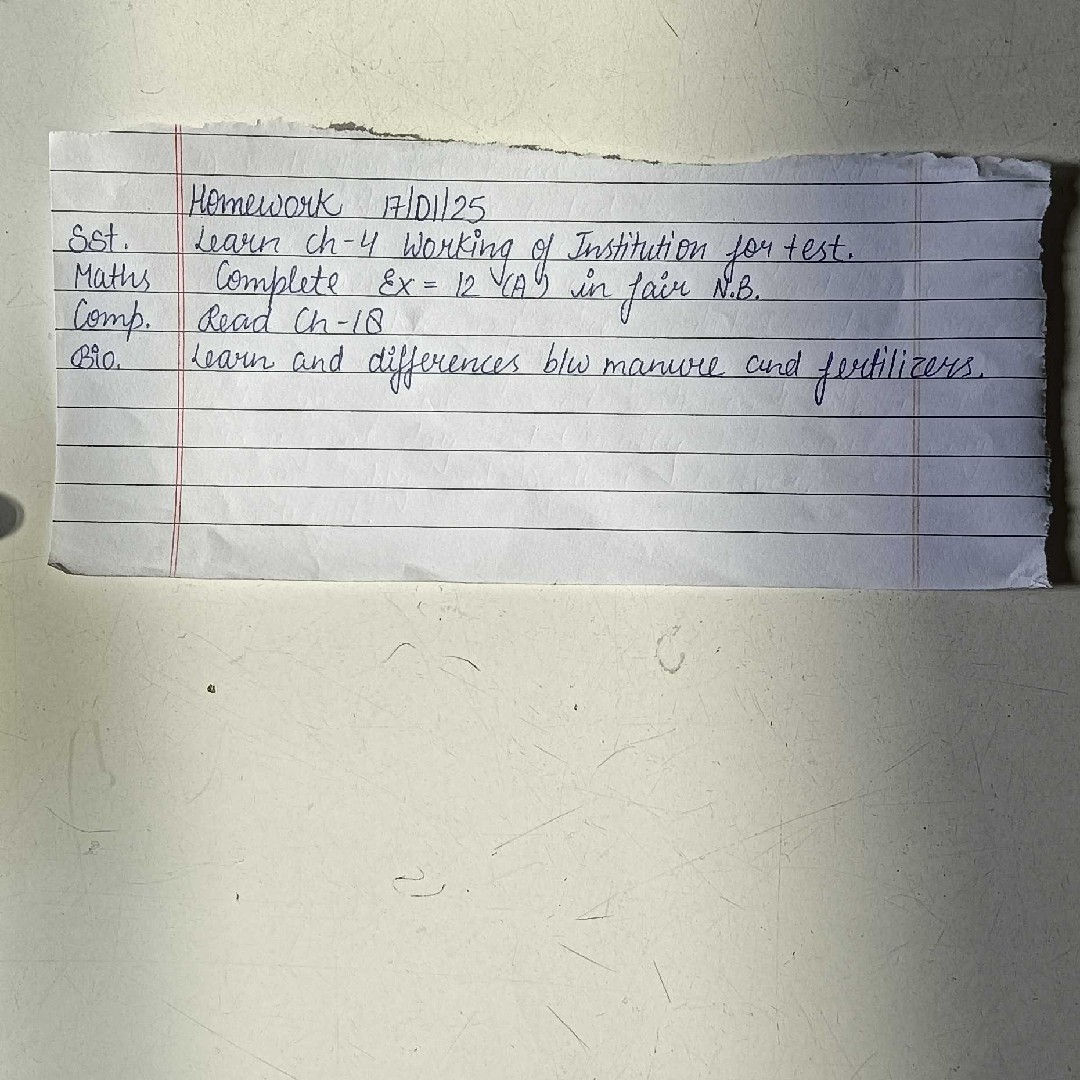 Homework 17/01/25
Sst. Learn Ch-4 Working of Institution for test.
Maths Complete Ex = 12 (A) in fair N.B.
Comp. Read Ch-18
Bio. Learn and differences b/w manure and fertilizers.